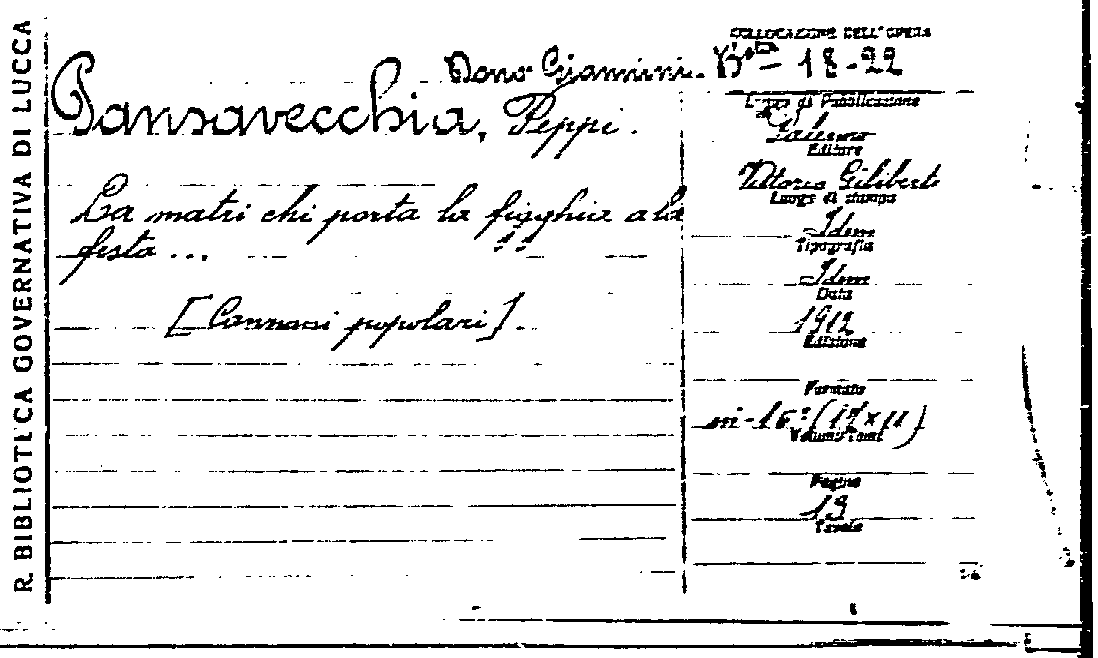 R. BIBLIOTECA GOVERNATIVA DI LUCCA
COLLOCAZIONE DELL'OPERA
Dono Giannini. 18-22
Pansavecchia, Peppi.
La matri chi porta la figghia a la
festa ...
[Canzoni popolari].
Luogo di Pubblicazione
Palermo
Editore
Vittorio Giliberti
Luogo di stampa
Idem
Tipografia
Idem
Data
1912
Edizione
Formato
in-16° (17x11)
Volumi/Tomi
Pagine
13
Tavole